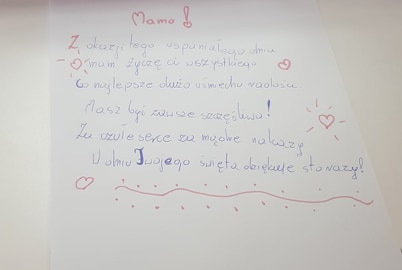 Mamo!
Z okazji tego wspaniałego dnia
mam życzę ci wszystkiego
Co najlepsze dużo uśmiechu radości.
Masz być zawsze szczęśliwa!
Za czułe serce za mądre nakazy
W dniu Twojego święta dziękuję sto razy!